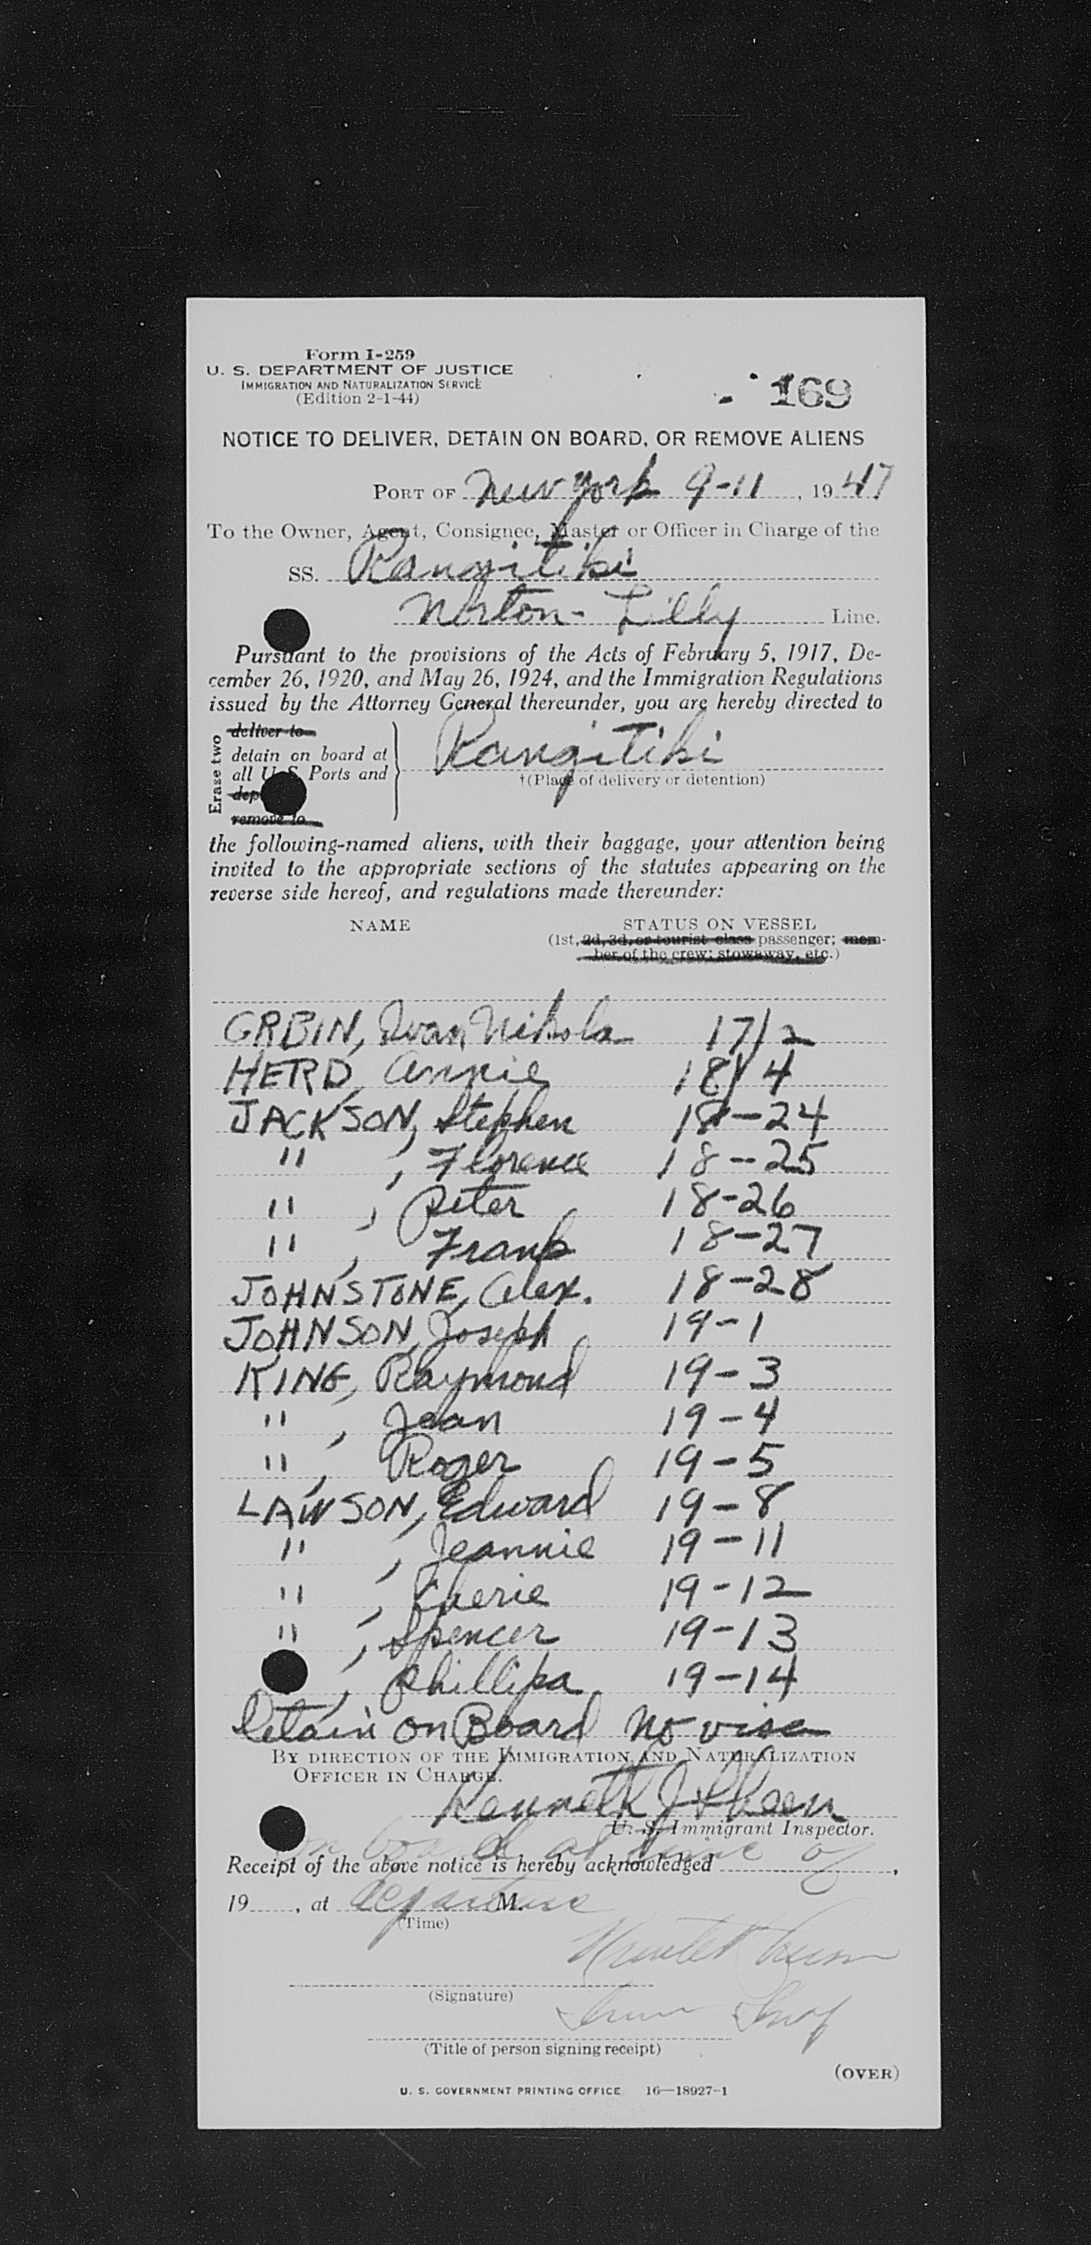 Form I-259
U. S. DEPARTMENT OF JUSTICE
IMMIGRATION AND NATURALIZATION SERVICE
(Edition 2-1-44)
169
NOTICE TO DELIVER, DETAIN ON BOARD, OR REMOVE ALIENS
PORT OF New York 9-11, 1947
To the Owner, Agent, Consignee, Master or Officer in Charge of the
SS. Rangitiki
Norton-Lilly Line.
Pursuant to the provisions of the Acts of February 5, 1917, De-
cember 26, 1920, and May 26, 1924, and the Immigration Regulations
issued by the Attorney General thereunder, you are hereby directed to
Erase two
deliver to
detain on board at
all U. S. Ports and
dep
remove to
Rangitiki
†(Place of delivery or detention)
the following-named aliens, with their baggage, your attention being
invited to the appropriate sections of the statutes appearing on the
reverse side hereof, and regulations made thereunder:
NAME STATUS ON VESSEL
(1st, 2d, 3d, or tourist class passenger; mem-
ber of the crew; stowaway, etc.)
GRBIN, Ivan Nikola 17/2
HERD, Annie 18/4
JACKSON, Stephen 18-24
" , Florence 18-25
" , Peter 18-26
" , Frank 18-27
JOHNSTONE, Alex. 18-28
JOHNSON, Joseph 19-1
KING, Raymond 19-3
" , Jean 19-4
" , Roger 19-5
LAWSON, Edward 19-8
" , Jeannie 19-11
" , Cherie 19-12
" , Spencer 19-13
, Phillipa 19-14
Detain on Board No visa
BY DIRECTION OF THE IMMIGRATION AND NATURALIZATION
OFFICER IN CHARGE.
Kenneth J
U. S. Immigrant Inspector.
on board at time of
Receipt of the above notice is hereby acknowledged ,
19 , at departure M.
(Time)
(Signature)
(Title of person signing receipt)
(OVER)
U. S. GOVERNMENT PRINTING OFFICE 16—18927-1